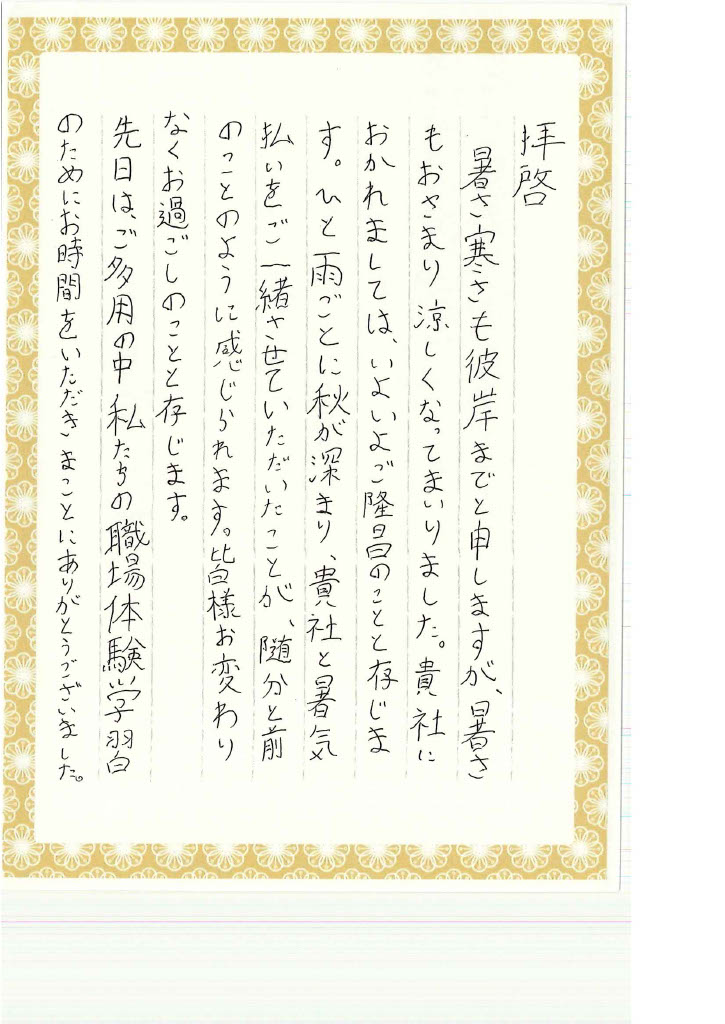 拝啓
暑さ寒さも彼岸までと申しますが、暑さ
もおさまり涼しくなってまいりました。貴社に
おかれましては、いよいよご隆昌のことと存じま
す。ひと雨ごとに秋が深まり、貴社と暑気
払いをご一緒させていただいたことが、随分と前
のことのように感じられます。皆様お変わり
なくお過ごしのことと存じます。
先日は、ご多用の中私たちの職場体験学習
のためにお時間をいただきまことにありがとうございました。